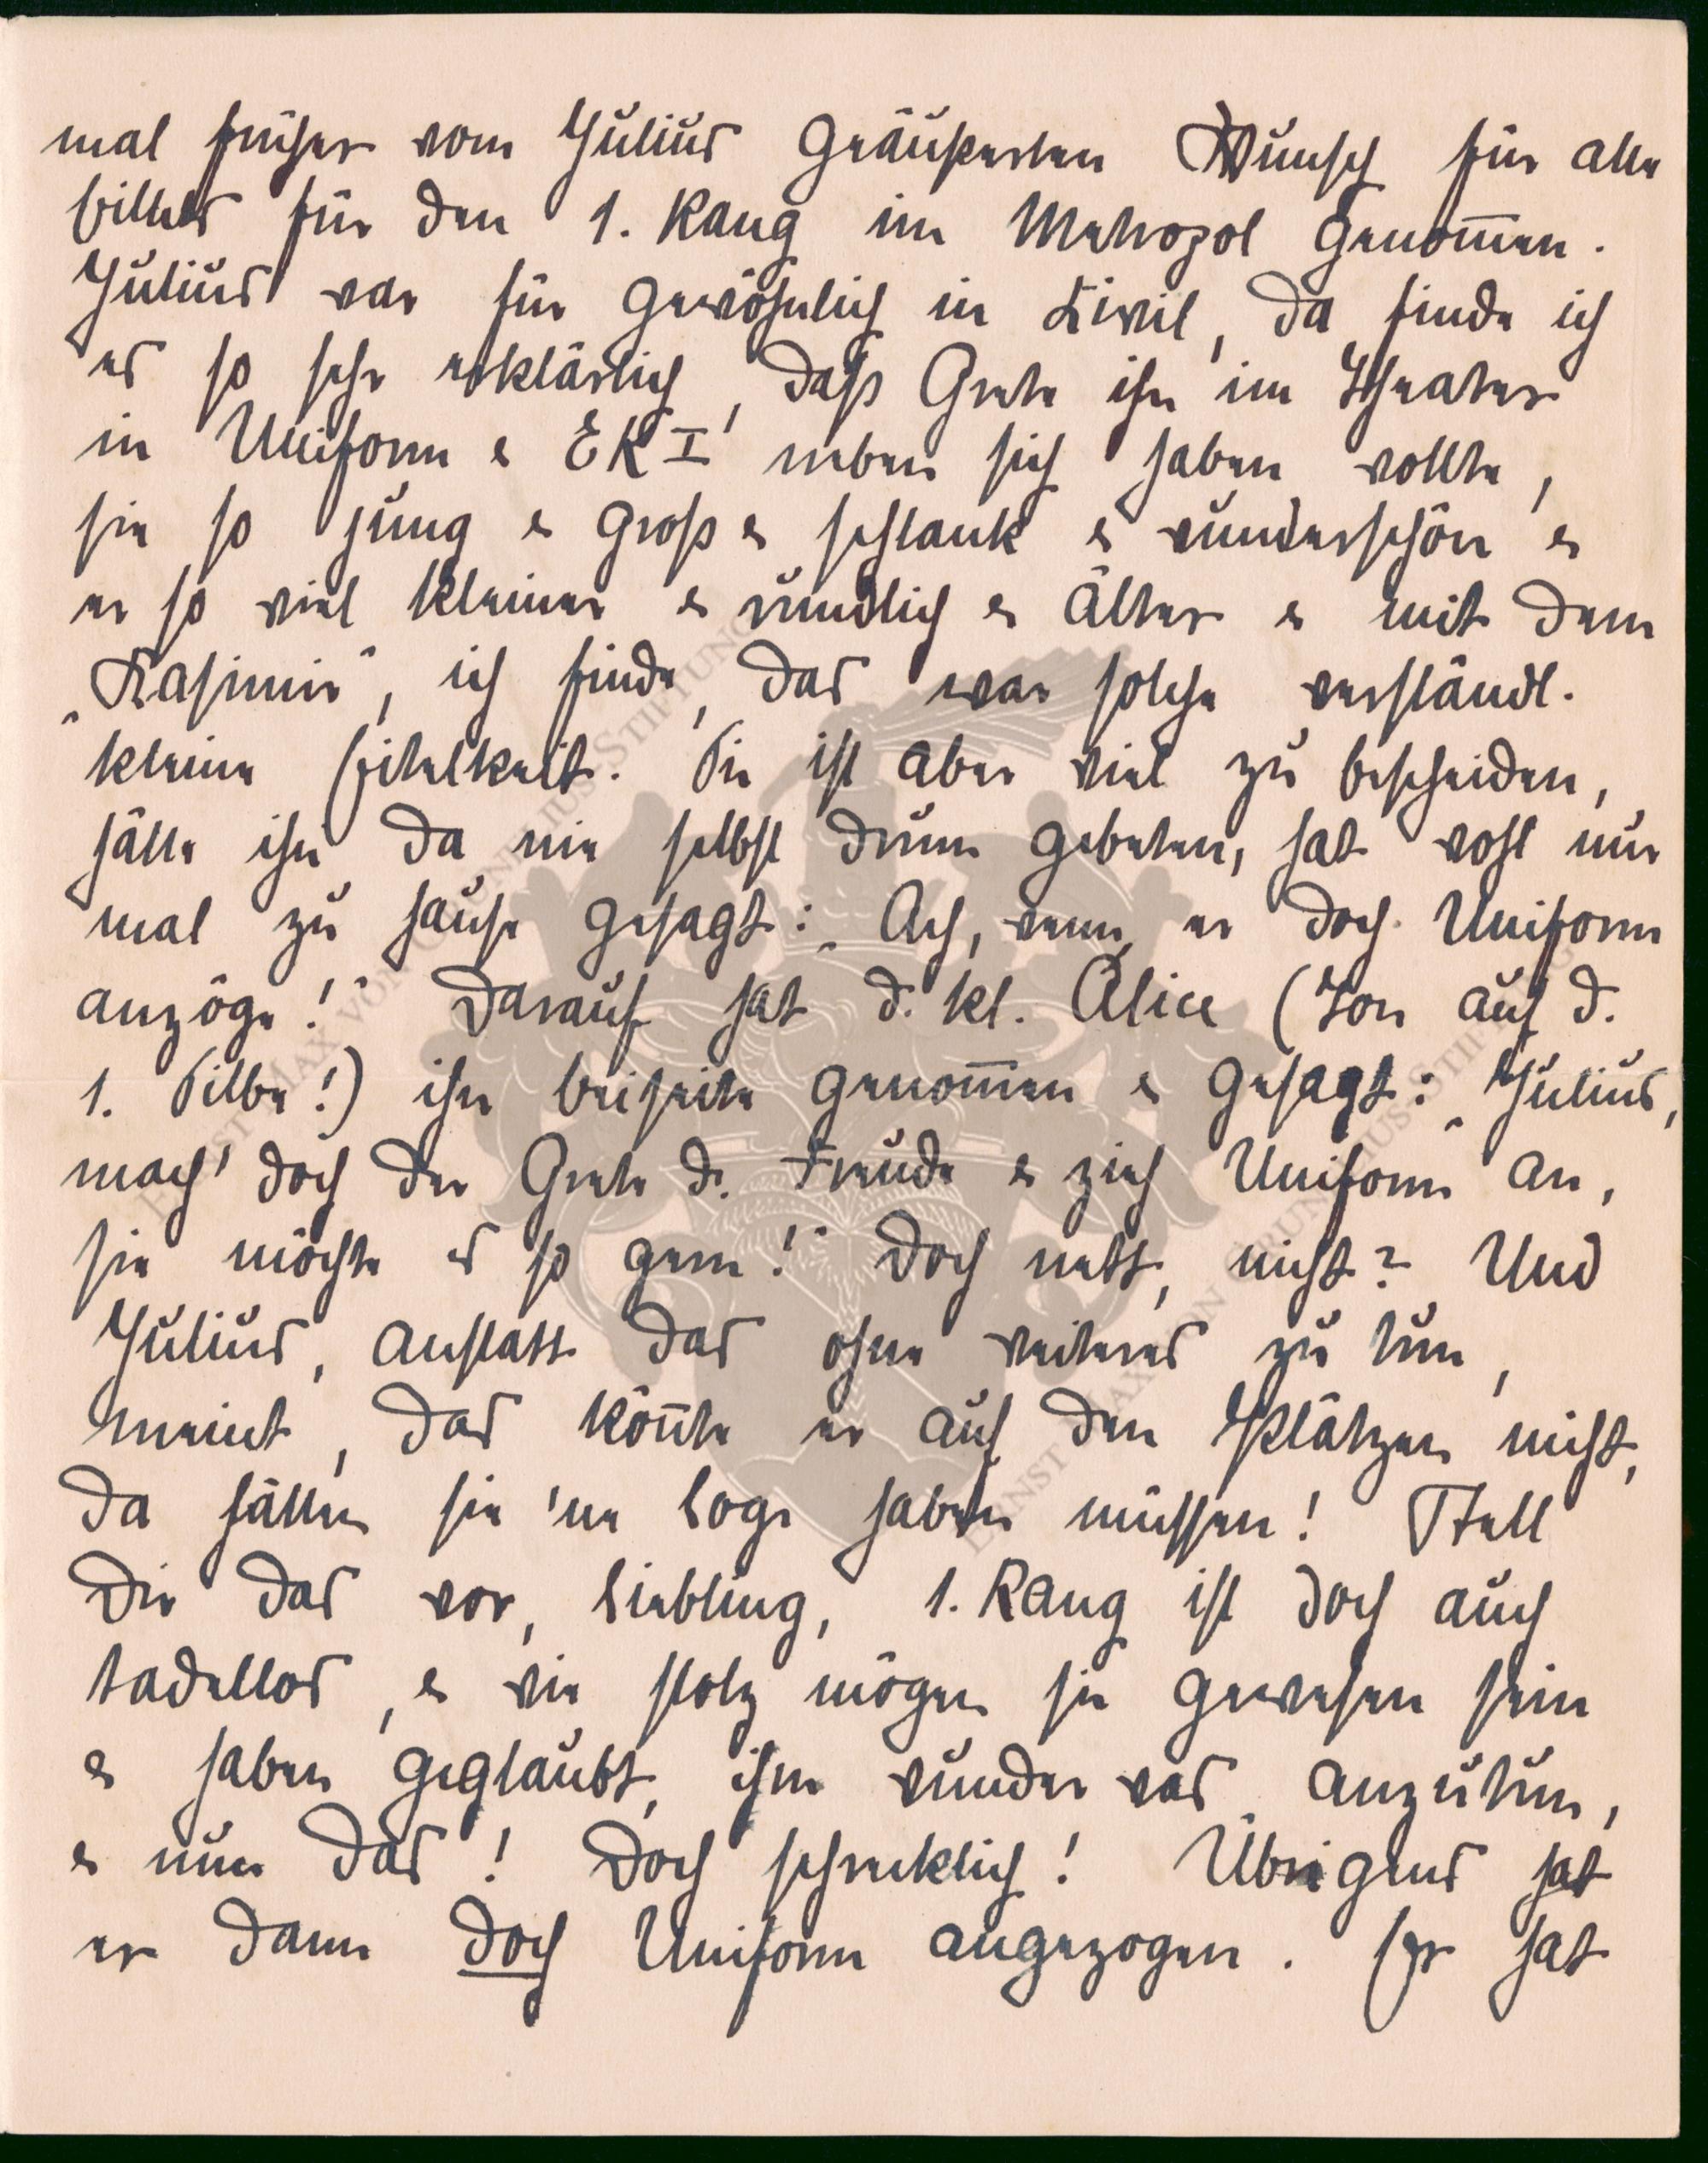 mal früher vom Julius geäußerten Wunsch für alle
billets für den 1. Rang im Metropol genom̅en.
Julius war für gewöhnlich in Zivil, da finde ich
es so sehr erklärlich, daß Grete ihn im Theater
in Uniform & EK I neben sich haben wollte,
sie so jung & groß & schlank & wunderschön &
er so viel kleiner & rundlich & älter & mit dem
„Kasimir“, ich finde, das war solche verständl.
kleine Eitelkeit. Sie ist aber viel zu bescheiden,
hätte ihn da nie selbst drum gebeten, hat wohl nur
mal zu hause gesagt: „Ach, wenn er doch Uniform
anzöge!“ Darauf hat d. kl. Alice (Ton auf d.
1. Silbe!) ihn beiseite genom̅en & gesagt: „Julius,
mach' doch der Grete d. Freude & zieh Uniform an,
sie möchte es so gern!“ Doch nett, nicht? Und
Julius, anstatt das ohne weiteres zu tun,
meint, das kön̅te er auf den Plätzen nicht,
da hätten sie 'ne Loge haben müssen! Stell
Dir das vor, Liebling, 1. Rang ist doch auch
tadellos, & wie stolz mögen sie gewesen sein
& haben geglaubt, ihm wunder was anzutun,
& nun das! Doch schrecklich! Übrigens hat
er dann doch Uniform angezogen. Er hat
ERNST MAX VON GRUNELIUS-STIFTUNG
ERNST MAX VON GRUNELIUS-STIFTUNG